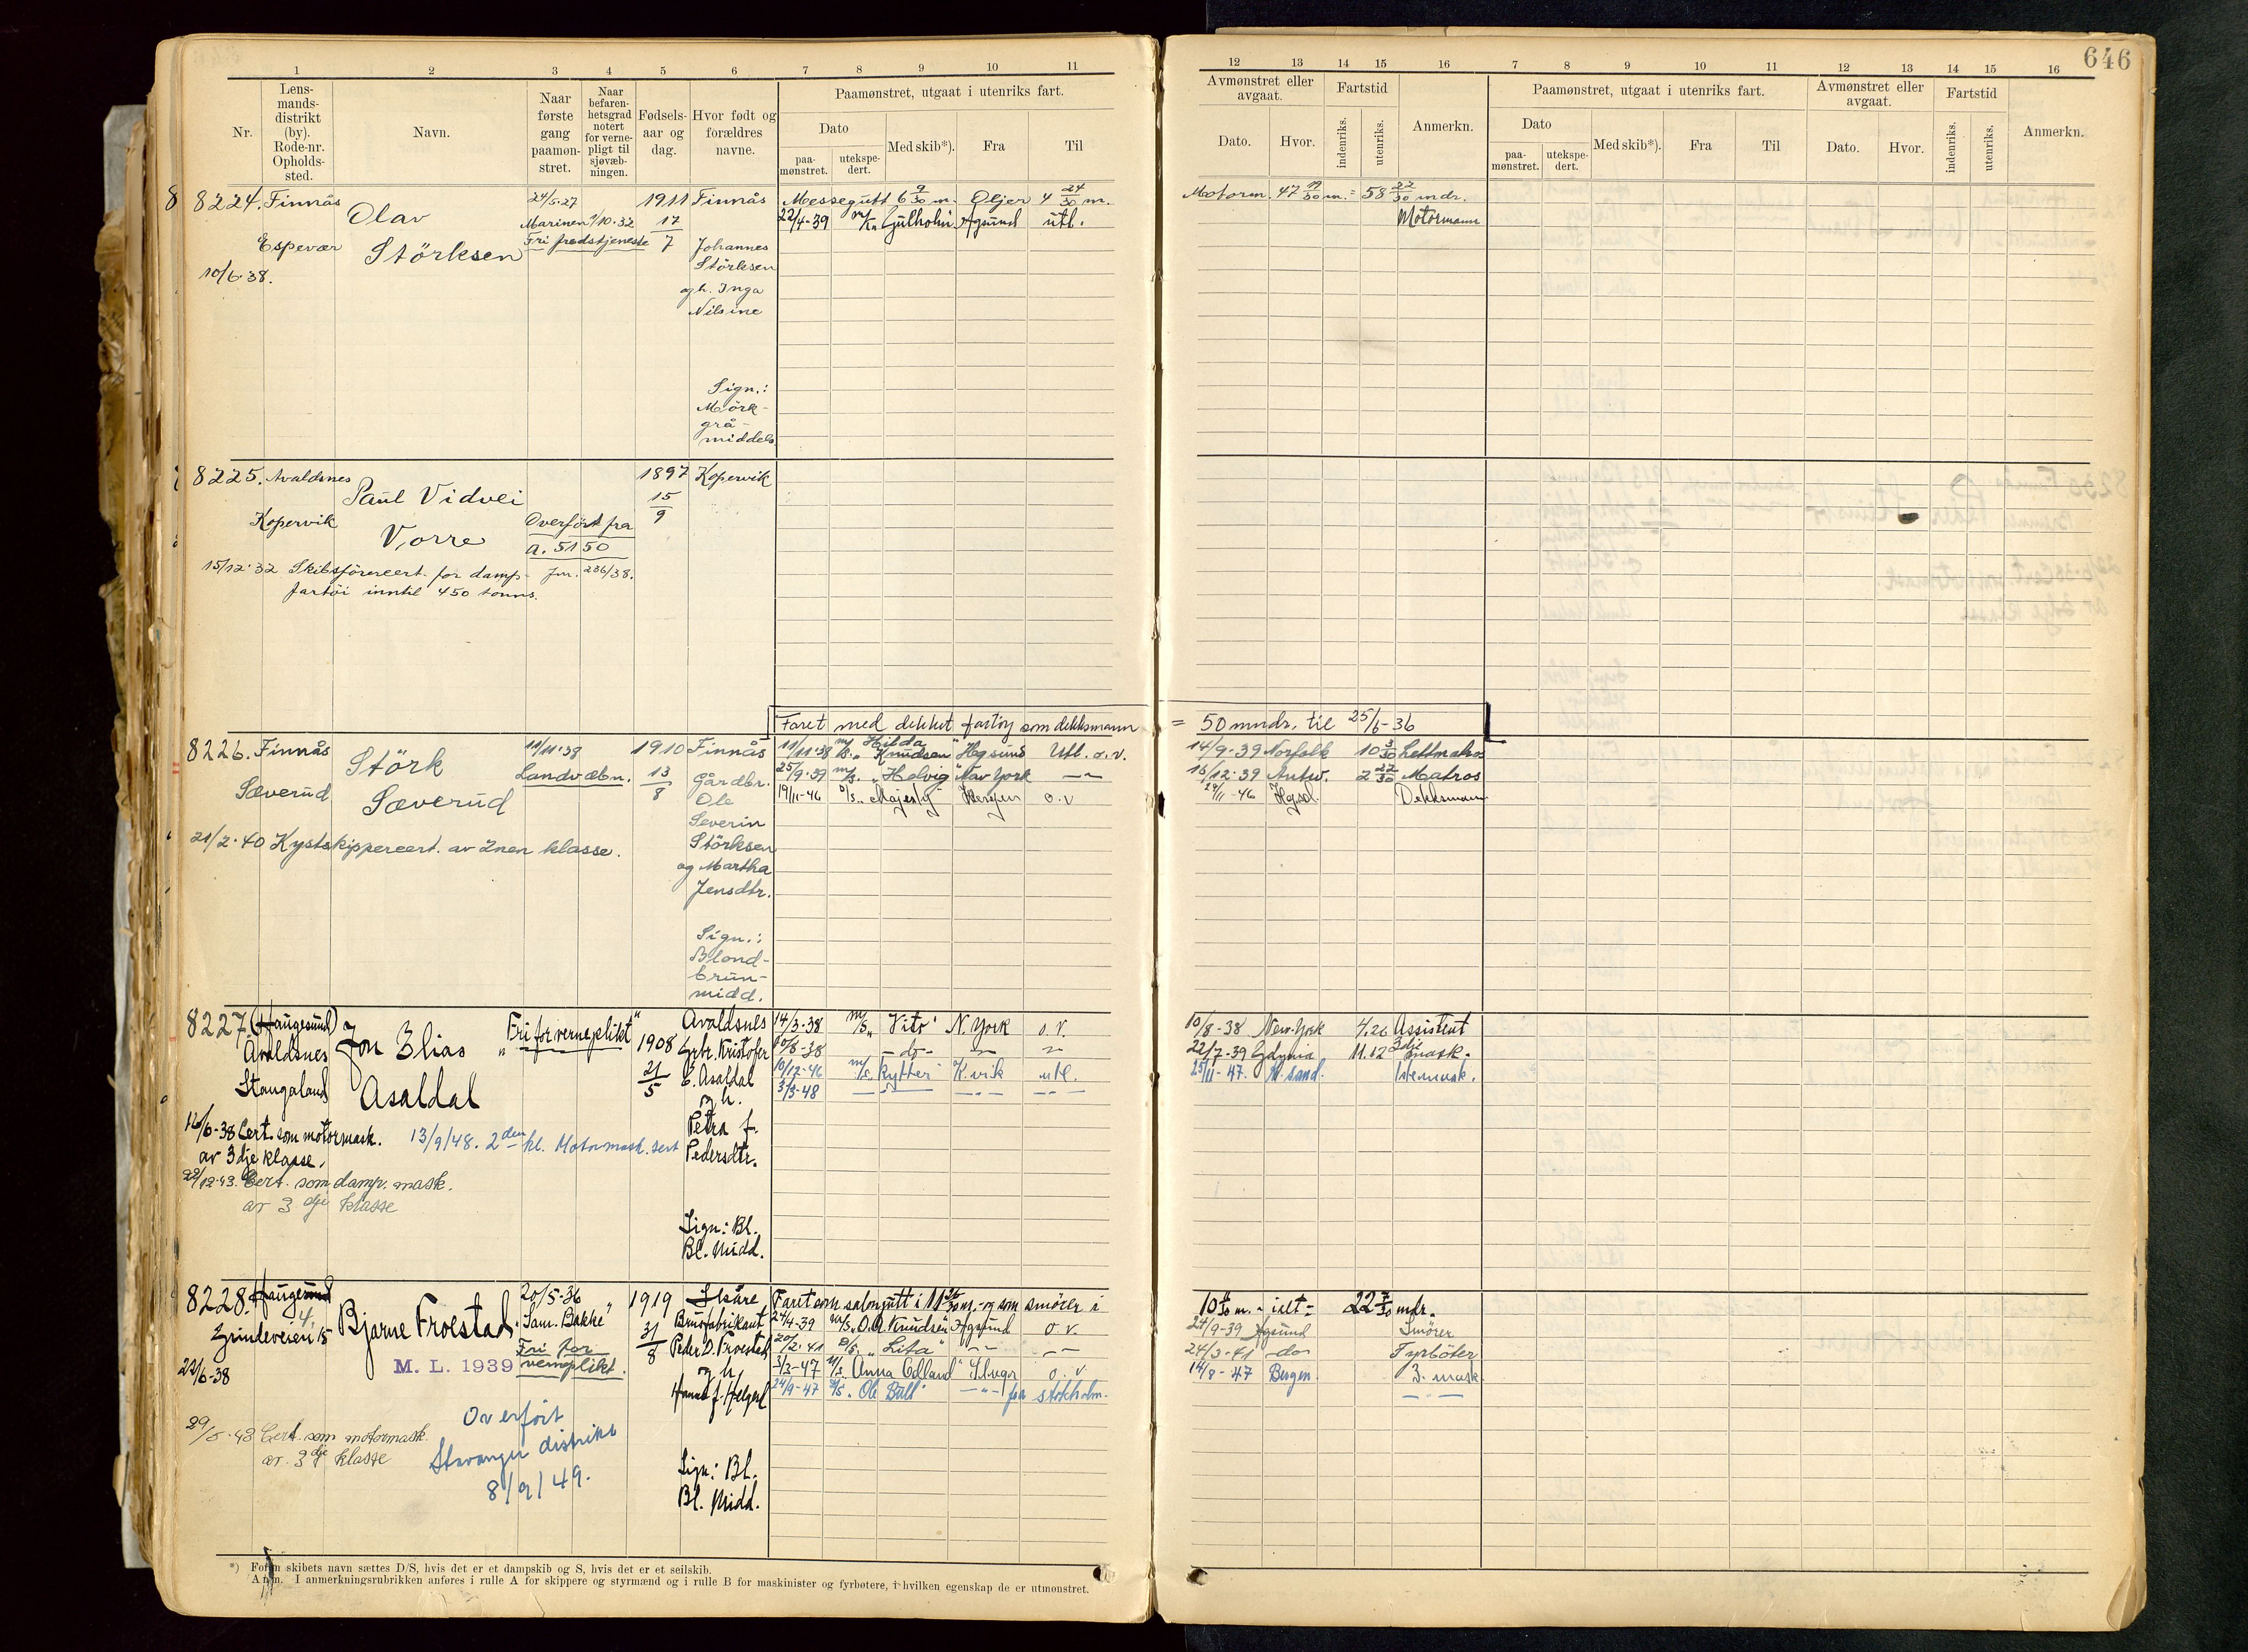 646
1 2 3 4 5 6 7 8 9 10 11
12 13 14 15 16 7 8 9 10 11 12 13 14 15 16
Nr.
Lens-
mands-
distrikt
(by).
Rode-nr.
Opholds-
sted.
Navn.
Naar
første
gang
paamøn-
stret.
Naar
befaren-
hetsgrad
notert
for verne-
pligt til
sjøvæb-
ningen.
Fødsels-
aar og
dag.
Hvor født og
forældres
navne.
Paamønstret, utgaat i utenriks fart.
Dato
paa-
mønstret.
utekspe-
dert.
Med skib*).
Fra
Til
Avmønstret eller
avgaat.
Dato.
Hvor.
Fartstid
indenriks.
utenriks.
Anmerkn.
Paamønstret, utgaat i utenriks fart.
Dato
paa-
mønstret.
utekspe-
dert.
Med skib*).
Fra
Til
Avmønstret eller
avgaat.
Dato.
Hvor.
Fartstid
indenriks.
utenriks.
Anmerkn.
8224. Finnås
Espevær
10/6-38.
Olav
Störksen
24/5-27
Marinen 1/10-32
Fri fredstjeneste
1911
17
7
Finnås
Johannes
Störksen
og h. Inga
Nilsine
Sign.:
Mörk-
grå-
middels
Messegutt 6 9/30 m. Oljer 4 24/30 m.
Motorm. 47 19/30 m. = 58 22/30 mdr.
22/4-39 Gulholm Hgsund utl.
Motormann
8225. Avaldsnes
Kopervik
Paul Vidvei
Vorre
Overfört fra
A. 5150
Jnr. 286/38.
1897
15
9
Kopervik
15/12-32 Skibsförercert. for damp-
fartöi inntil 450 tonns.
Faret med dekket fartöy som dekksmann = 50 mndr. til 25/6-36
8226. Finnås
Sæverud
Störk
Sæverud
11/11-38
Landvæbn.
1910
13
8
Finnås
Gårdbr.
Ole
Severin
Störksen
og Martha
Jensdtr.
Sign.:
Blond-
brun-
midd.
21/2-40 Kystskippercert. av 2nen klasse.
11/11-38 m/s. "Hilda Knudsen" Hgsund Utl. o.v. 14/9-39 Norfolk 10 3/30 Lettmatros
25/9-39 m/s. "Helvig" New York — 16/12-39 Antw. 2 22/30 Matros
19/11-46 D/s. "Majesty" Bergen o.v 29/11-46 Hgsd. Dekksmann
8227. (Haugesund)
Avaldsnes
Stangaland
Jon Elias
Asaldal
"Fri for verneplikt"
1908
21
5
Avaldsnes
Grbr. Kristofer
E. Asaldal
og h.
Petra f.
Pedersdtr.
Sign: Bl.
Bl. Midd.
14/6-38 Cert. som motormask.
av 3dje klasse.
13/9/48. 2den kl. Motormask. sert
22/12-43. Cert. som damp. mask.
av 3dje klasse
14/3-38 m/s "Vito" N. York o.v. 10/8-38 New-York 4.26 Assistent
10/8-38 — do — 22/7-39 Gdynia 11.12 3dje mask.
10/12-46 m/s. Rytter K.vik utl. 25/11-47. Kr sand. 1ste mask.
3/3-48
8228. Haugesund
Grindeveien 15
22/6-38
Bjarne Froestad
20/5-36
"Sam. Bakke"
Fri for
verneplikt.
M. L. 1939
1919
31
8
Brusfabrikant
Peder D. Froestad
og h.
Hanna f. Helgesd
Sign: Bl.
Bl. Midd.
Faret som salongutt i 11 26/30 m. og som smörer i 10 11/30 m. - ialt = 22 7/30 mdr.
24/4-39 m/s. "O.A. Knudsen" Hgsund o.v. 24/9-39 Hgsund Smörer
20/2-41 D/s. "Lita" 24/3-41 do Fyrböter
3/3-47 M/s. "Anna Odland" o.v 14/8-47 Bergen 3. mask
24/9-47 D/s. "Ole Bull" fra stokholm.
29/5-43 Cert. som motormask.
av. 3dje klasse
Overfört
Stavanger distrikt
8/9/49.
*) Foran skibets navn sættes D/S, hvis det er et dampskib og S, hvis det er et seilskib.
Anm. I anmerkningsrubrikken anføres i rulle A for skippere og styrmænd og i rulle B for maskinister og fyrbøtere, i hvilken egenskap de er utmønstret.